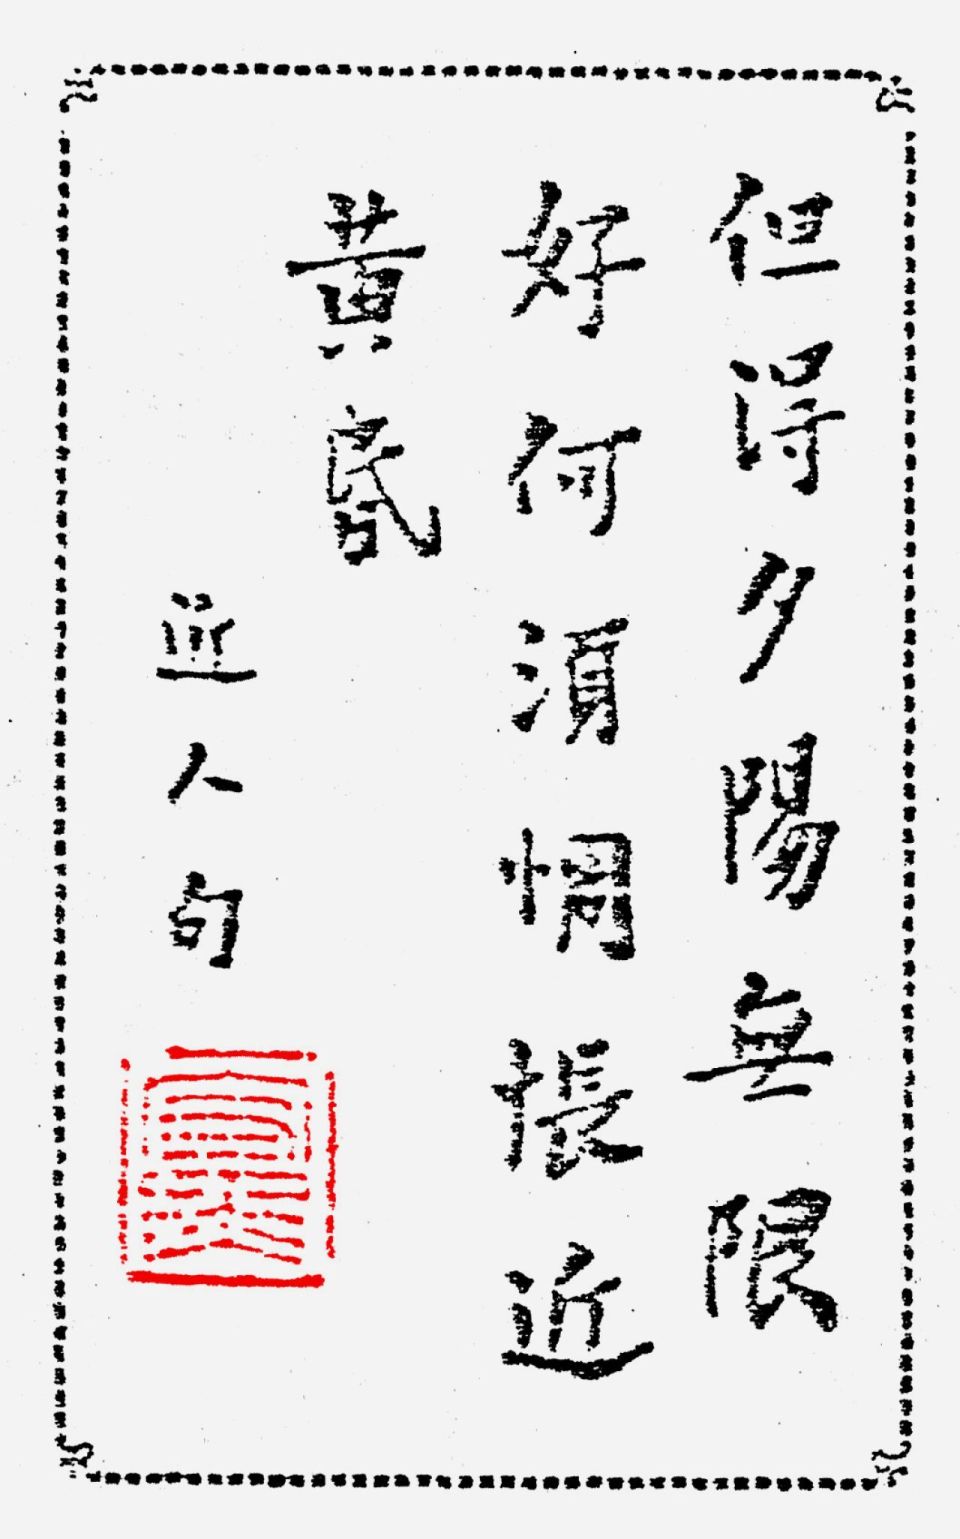 但得夕陽無限
好何須惆悵近
黃昏
近人句